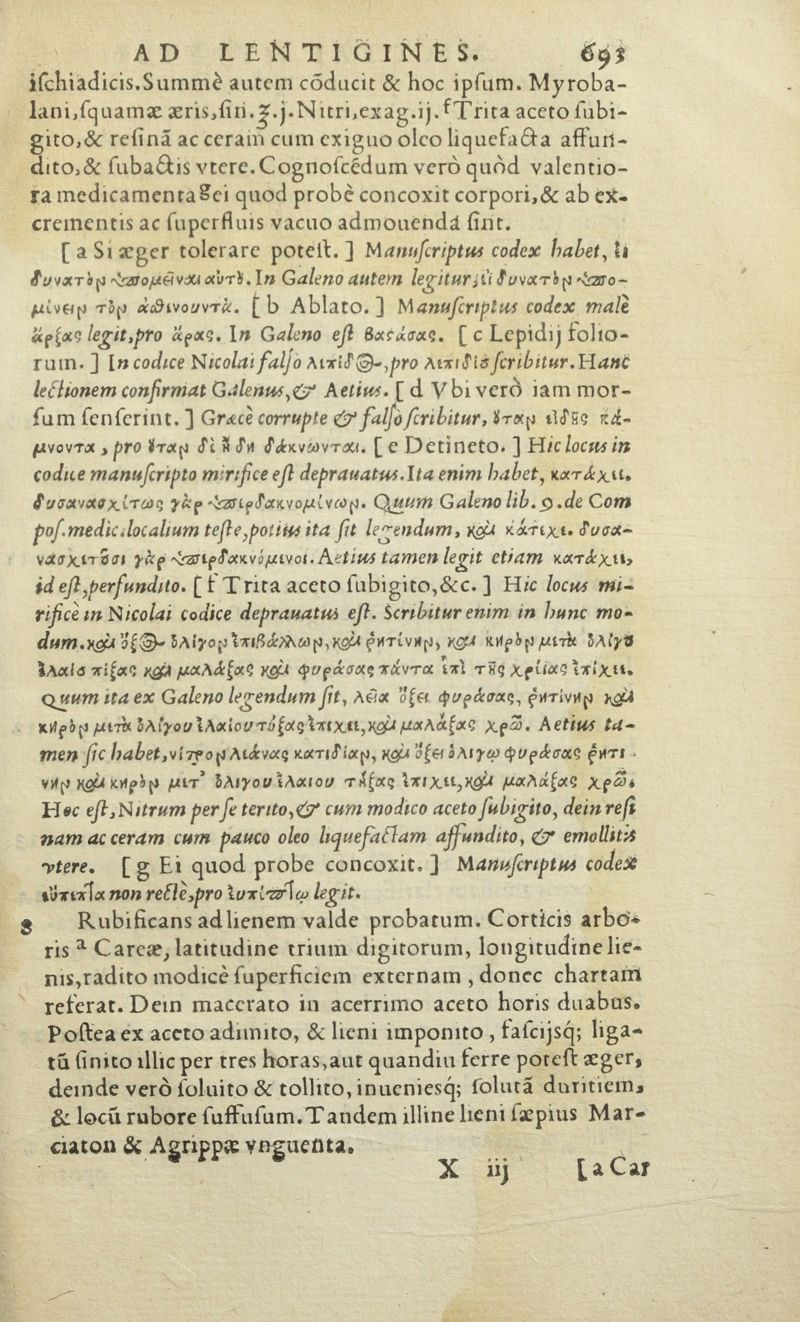 AD LENTIGINES. 693
iſchiadicis. Summè autem cōducit & hoc ipſum. Myroba-
lani, ſquamæ æris, ſiri. ℥.j. Nitri, exag. ij. ᶠTrita aceto ſubi-
gito, & reſinā ac ceram cum exiguo oleo liquefacta affun-
dito, & ſubactis vtere. Cognoſcēdum verò quòd valentio-
ra medicamenta ᵍei quod probè concoxit corpori, & ab ex-
crementis ac ſuperfluis vacuo admouenda ſint.
[a Si æger tolerare poteſt.] Manuſcriptus codex habet, εἰ
δυνατὸν ὑπομεῖναι αὐτȣ̀. In Galeno autem legitur, εἰ δυνατὸν ὑπο-
μένειν τὸν ἀσθενοῦντα. [b Ablato.] Manuſcriptus codex malè
ἄρξας legit, pro ἄρας. In Galeno eſt βαστάσας. [c Lepidij folio-
rum.] In codice Nicolai falſo λεπίδος, pro λεπιδίȣ ſcribitur. Hanc
lectionem confirmat Galenus, & Aetius. [d Vbi verò iam mor-
ſum ſenſerint.] Græcè corruptè & falſò ſcribitur, ὅταν εἰδῇς κά-
μνοντα, pro ὅταν δὲ ἤδη δάκνωνται. [e Detineto.] Hic locus in
codice manuſcripto mirificè eſt deprauatus. Ita enim habet, κατάχει.
δυσανασχέτως γὰρ ὑπερδακνομένων. Quum Galeno lib. 9. de Com
poſ. medic. localium teſte, potius ita ſit legendum, καὶ κάτεχε. δυσα-
νάσχετόσι γὰρ ὑπερδακνόμενοι. Aetius tamen legit etiam κατάχει,
id eſt, perfundito. [f Trita aceto ſubigito, &c.] Hic locus mi-
rificè in Nicolai codice deprauatus eſt. Scribitur enim in hunc mo-
dum. καὶ ὄξος ὀλίγον ἐπιβάλλων, καὶ ῥητίνην, καὶ κηρὸν μετὰ ὀλίγȣ
ἐλαίȣ πίξας καὶ μαλάξας καὶ φυράσας πάντα ἐπὶ τῆς χρείας ἐπίχει.
Quum ita ex Galeno legendum ſit, λεῖα ὄξει φυράσας, ῥητίνην καὶ
κηρὸν μετὰ ὀλίγου ἐλαίου τήξας ἐπιχει, καὶ μαλάξας χρῶ. Aetius ta-
men ſic habet, νίτρον λεάνας κατιδίαν, καὶ ὄξει ὀλίγῳ φυράσας ῥητι-
νην καὶ κηρὸν μετ’ ὀλίγου ἐλαιου τήξας ἐπιχει, καὶ μαλάξας χρῶ.
Hoc eſt, Nitrum per ſe terito, & cum modico aceto ſubigito, dein reſi
nam ac ceram cum pauco oleo liquefactam affundito, & emollitis
vtere. [g Ei quod probe concoxit.] Manuſcriptus codex
εὔπεπτα non rectè, pro εὐπέπτῳ legit.
8 Rubificans ad lienem valde probatum. Corticis arbo-
ris ᵃ Careæ, latitudine trium digitorum, longitudine lie-
nis, radito modicè ſuperficiem externam, donec chartam
referat. Dein macerato in acerrimo aceto horis duabus.
Poſtea ex aceto adimito, & lieni imponito, faſcijsq; liga-
tū ſinito illic per tres horas, aut quandiu ferre poteſt æger,
deinde verò ſoluito & tollito, inueniesq; ſolutā duritiem,
& locū rubore ſuffuſum. Tandem illine lieni ſæpius Mar-
ciaton & Agrippæ vnguenta.
X iij [a Car